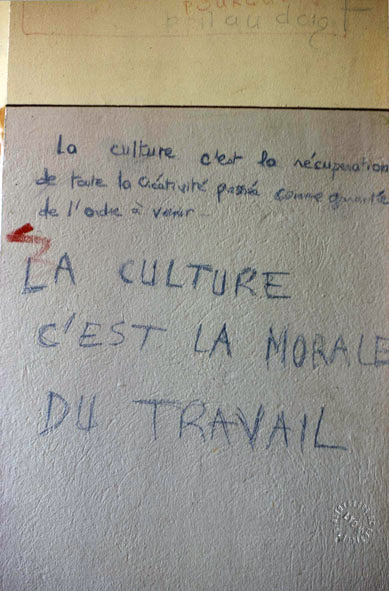 poil au doigt
La culture c'est la récuperation
de toute la créativité passée comme garantie
de l'ordre à venir
LA CULTURE
C'EST LA MORALE
DU TRAVAIL